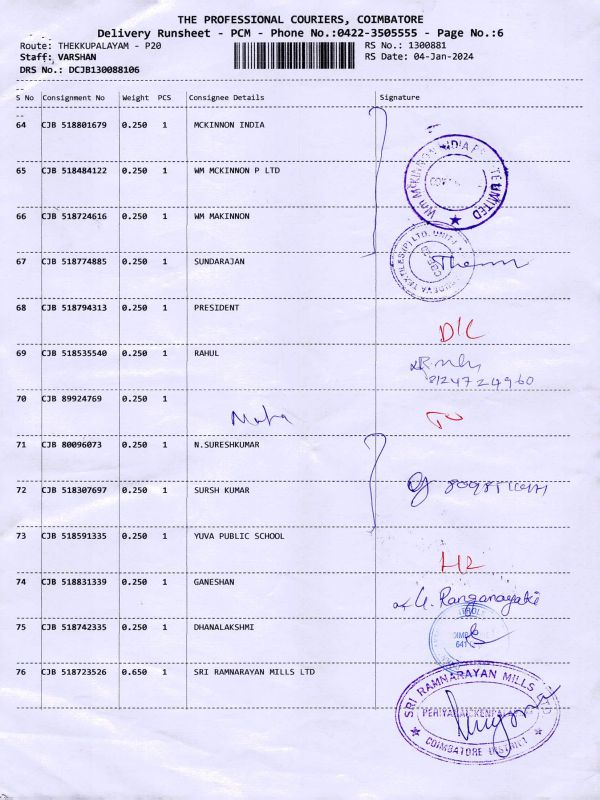 THE PROFESSIONAL COURIERS, COIMBATORE
Delivery Runsheet - PCM - Phone No.:0422-3505555 - Page No.:6
Route: THEKKUPALAYAM - P20
RS No.: 1300881
Staff: VARSHAN
RS Date: 04-Jan-2024
DRS No.: DCJB130088106
S No Consignment No Weight PCS Consignee Details Signature
64 CJB 518801679 0.250 1 MCKINNON INDIA
65 CJB 518484122 0.250 1 WM MCKINNON P LTD
WM MCKINNON INDIA PRIVATE LIMITED
66 CJB 518724616 0.250 1 WM MAKINNON
67 CJB 518774885 0.250 1 SUNDARAJAN
TEXTILES (P) LTD. UNIT-I
68 CJB 518794313 0.250 1 PRESIDENT
D/L
69 CJB 518535540 0.250 1 RAHUL
8124724960
70 CJB 89924769 0.250 1
71 CJB 80096073 0.250 1 N.SURESHKUMAR
72 CJB 518307697 0.250 1 SURSH KUMAR
73 CJB 518591335 0.250 1 YUVA PUBLIC SCHOOL
74 CJB 518831339 0.250 1 GANESHAN
U. Ranganayaki
75 CJB 518742335 0.250 1 DHANALAKSHMI
641
76 CJB 518723526 0.650 1 SRI RAMNARAYAN MILLS LTD
SRI RAMNARAYAN MILLS LTD
COIMBATORE DISTRICT